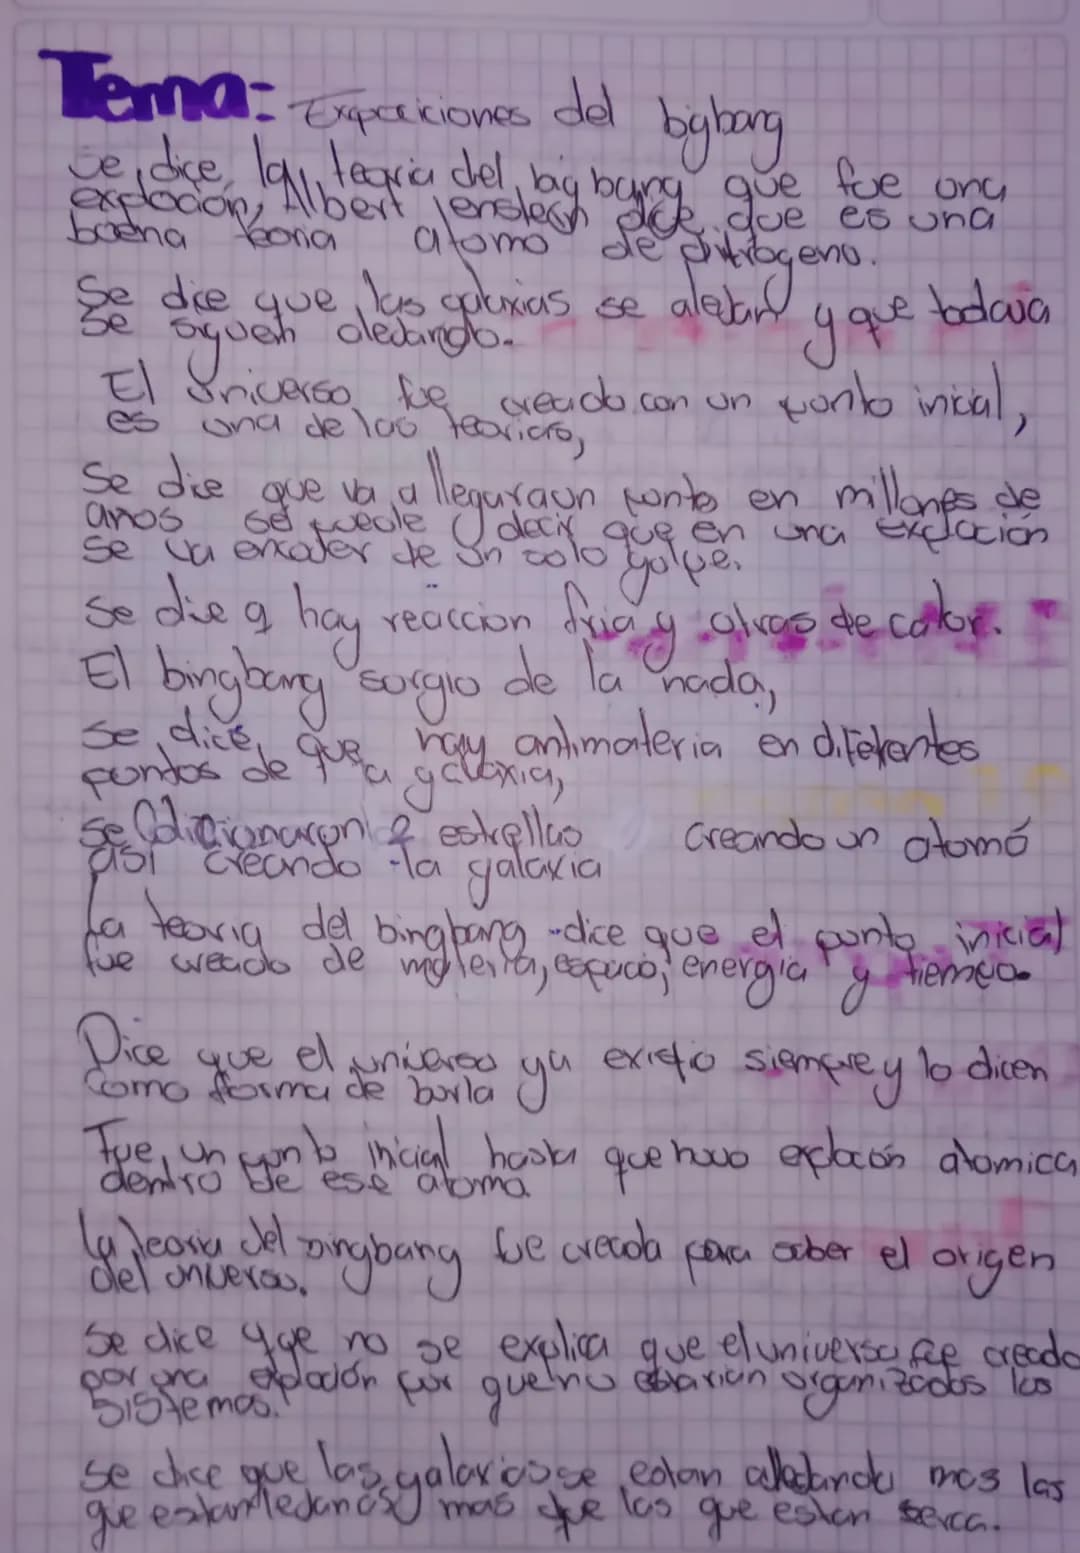 Tema: Exposiciones del bigbang
Se dice la teoria del big bang que fue una
explocion, Albert dice que es una
buena teoria atomo de
Se dice que las galaxias se alejan y que todavia
se siguen alejando.
El universo fue creado con un punto inicial,
es una de las teorias,
Se dice que va a llegar a un punto en millones de
anos se puede decir que en una explocion
se va de un solo golpe.
Se dice q hay reaccion fria y otras de calor.
El bingbang surgio de la nada,
Se dice que hay antimateria en diferentes
puntos de la galaxia,
se 2 estrellas creando un atomo
asi creando la galaxia
La teoria del bingbang dice que el punto inicial
fue creado de materia, espacio, energia y tiempo
Dice que el universo ya existio siempre y lo dicen
como forma de burla
Fue un punto inicial hasta que huvo explocion atomica
dentro de ese atomo
la teoria del bingbang fue creada para saber el origen
del universo.
Se dice que no se explica que el universo fue creado
por una explocion por que no estarian organizados los
sistemas.
se dice que las galaxias se estan alejando mas las
que estan mas que las que estan serca.